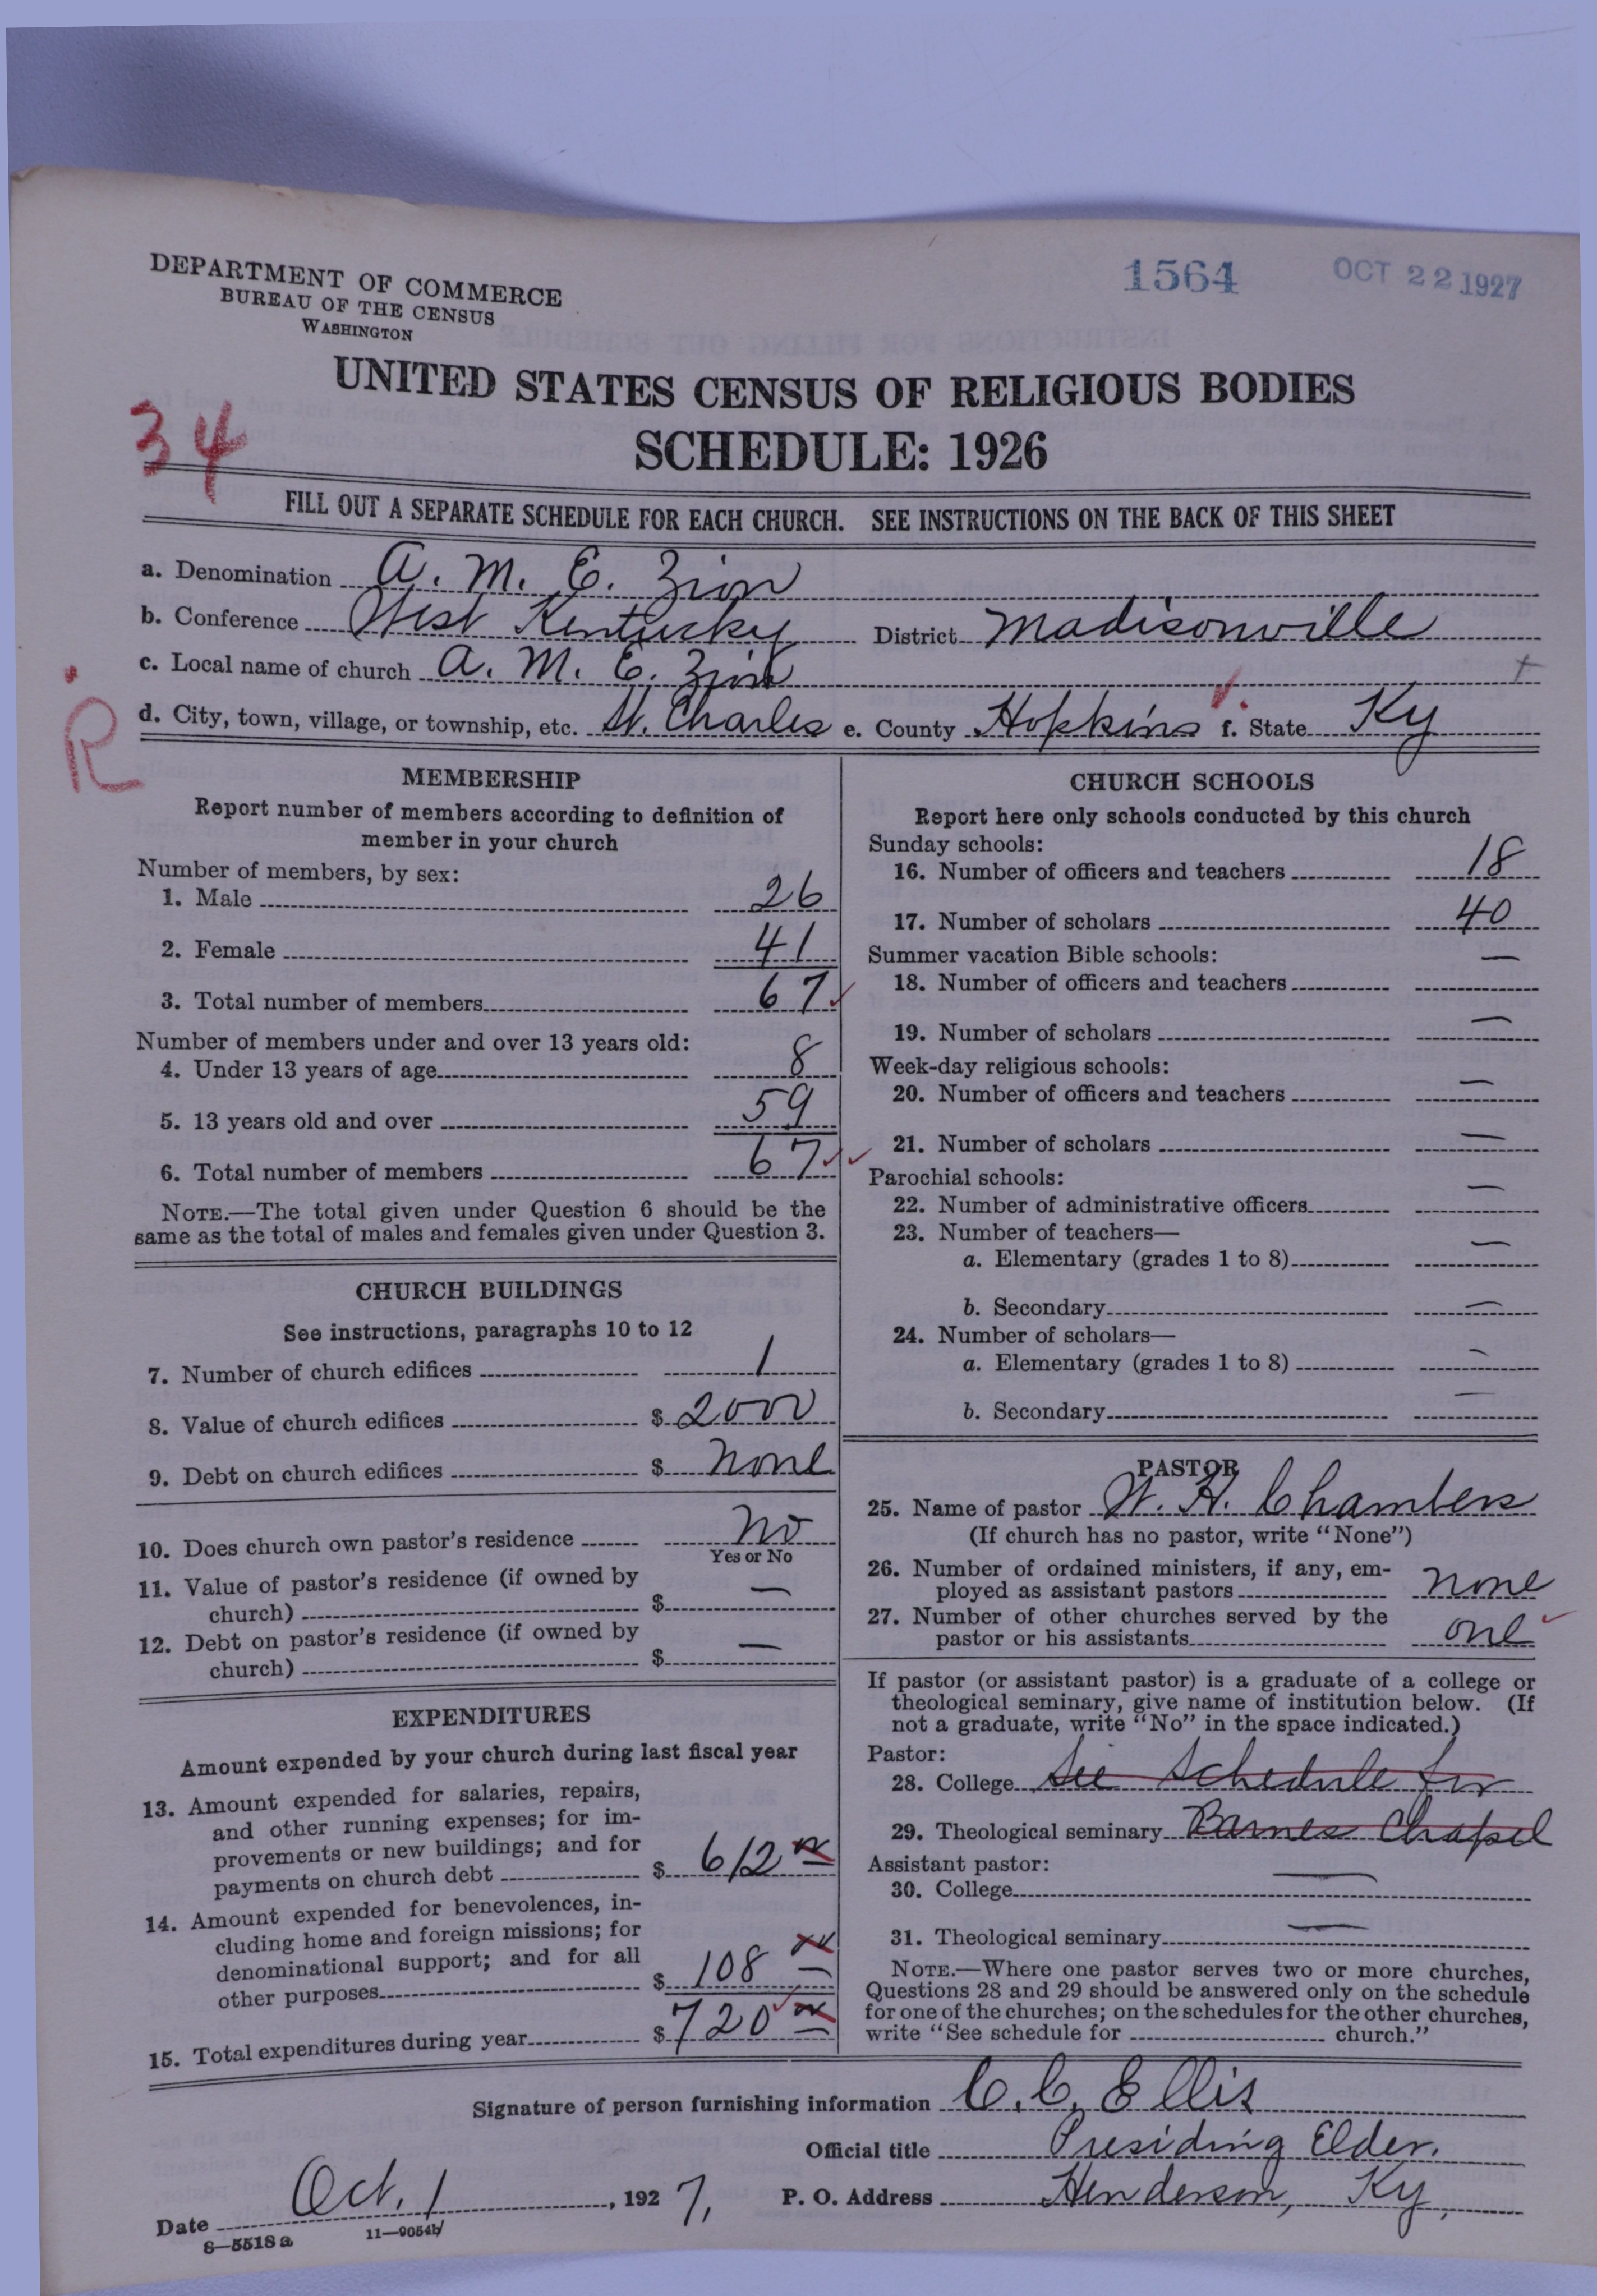 DEPARTMENT OF COMMERCE
BUREAU OF THE CENSUS
WASHINGTON
1564
OCT 22 1927
UNITED STATES CENSUS OF RELIGIOUS BODIES
34
SCHEDULE: 1926
FILL OUT A SEPARATE SCHEDULE FOR EACH CHURCH. SEE INSTRUCTIONS ON THE BACK OF THIS SHEET
a. Denomination A. M. E. Zion
b. Conference West Kentucky District Madisonville
c. Local name of church A. M. E. Zion
d. City, town, village, or township, etc. St. Charles e. County Hopkins f. State Ky
R
MEMBERSHIP
Report number of members according to definition of
member in your church
Number of members, by sex:
1. Male 26
2. Female 41
3. Total number of members 67
Number of members under and over 13 years old:
4. Under 13 years of age 8
5. 13 years old and over 59
6. Total number of members 67
NOTE.—The total given under Question 6 should be the
same as the total of males and females given under Question 3.
CHURCH BUILDINGS
See instructions, paragraphs 10 to 12
7. Number of church edifices 1
8. Value of church edifices $ 2000
9. Debt on church edifices $ none
10. Does church own pastor's residence No
Yes or No
11. Value of pastor's residence (if owned by
church) $ —
12. Debt on pastor's residence (if owned by
church) $ —
EXPENDITURES
Amount expended by your church during last fiscal year
13. Amount expended for salaries, repairs,
and other running expenses; for im-
provements or new buildings; and for
payments on church debt $ 612
14. Amount expended for benevolences, in-
cluding home and foreign missions; for
denominational support; and for all
other purposes $ 108
15. Total expenditures during year $ 720
CHURCH SCHOOLS
Report here only schools conducted by this church
Sunday schools:
16. Number of officers and teachers 18
17. Number of scholars 40
Summer vacation Bible schools:
18. Number of officers and teachers —
19. Number of scholars —
Week-day religious schools:
20. Number of officers and teachers —
21. Number of scholars —
Parochial schools:
22. Number of administrative officers —
23. Number of teachers—
a. Elementary (grades 1 to 8) —
b. Secondary —
24. Number of scholars—
a. Elementary (grades 1 to 8) —
b. Secondary —
PASTOR
25. Name of pastor W. H. Chambers
(If church has no pastor, write "None")
26. Number of ordained ministers, if any, em-
ployed as assistant pastors none
27. Number of other churches served by the
pastor or his assistants one
If pastor (or assistant pastor) is a graduate of a college or
theological seminary, give name of institution below. (If
not a graduate, write "No" in the space indicated.)
Pastor:
28. College See Schedule for
29. Theological seminary Barnes Chapel
Assistant pastor:
30. College —
31. Theological seminary —
NOTE.—Where one pastor serves two or more churches,
Questions 28 and 29 should be answered only on the schedule
for one of the churches; on the schedules for the other churches,
write "See schedule for church."
Signature of person furnishing information C. C. Ellis
Official title Presiding Elder.
Date Oct. 1, 1927, P. O. Address Henderson, Ky,
8—5518a 11—9054b